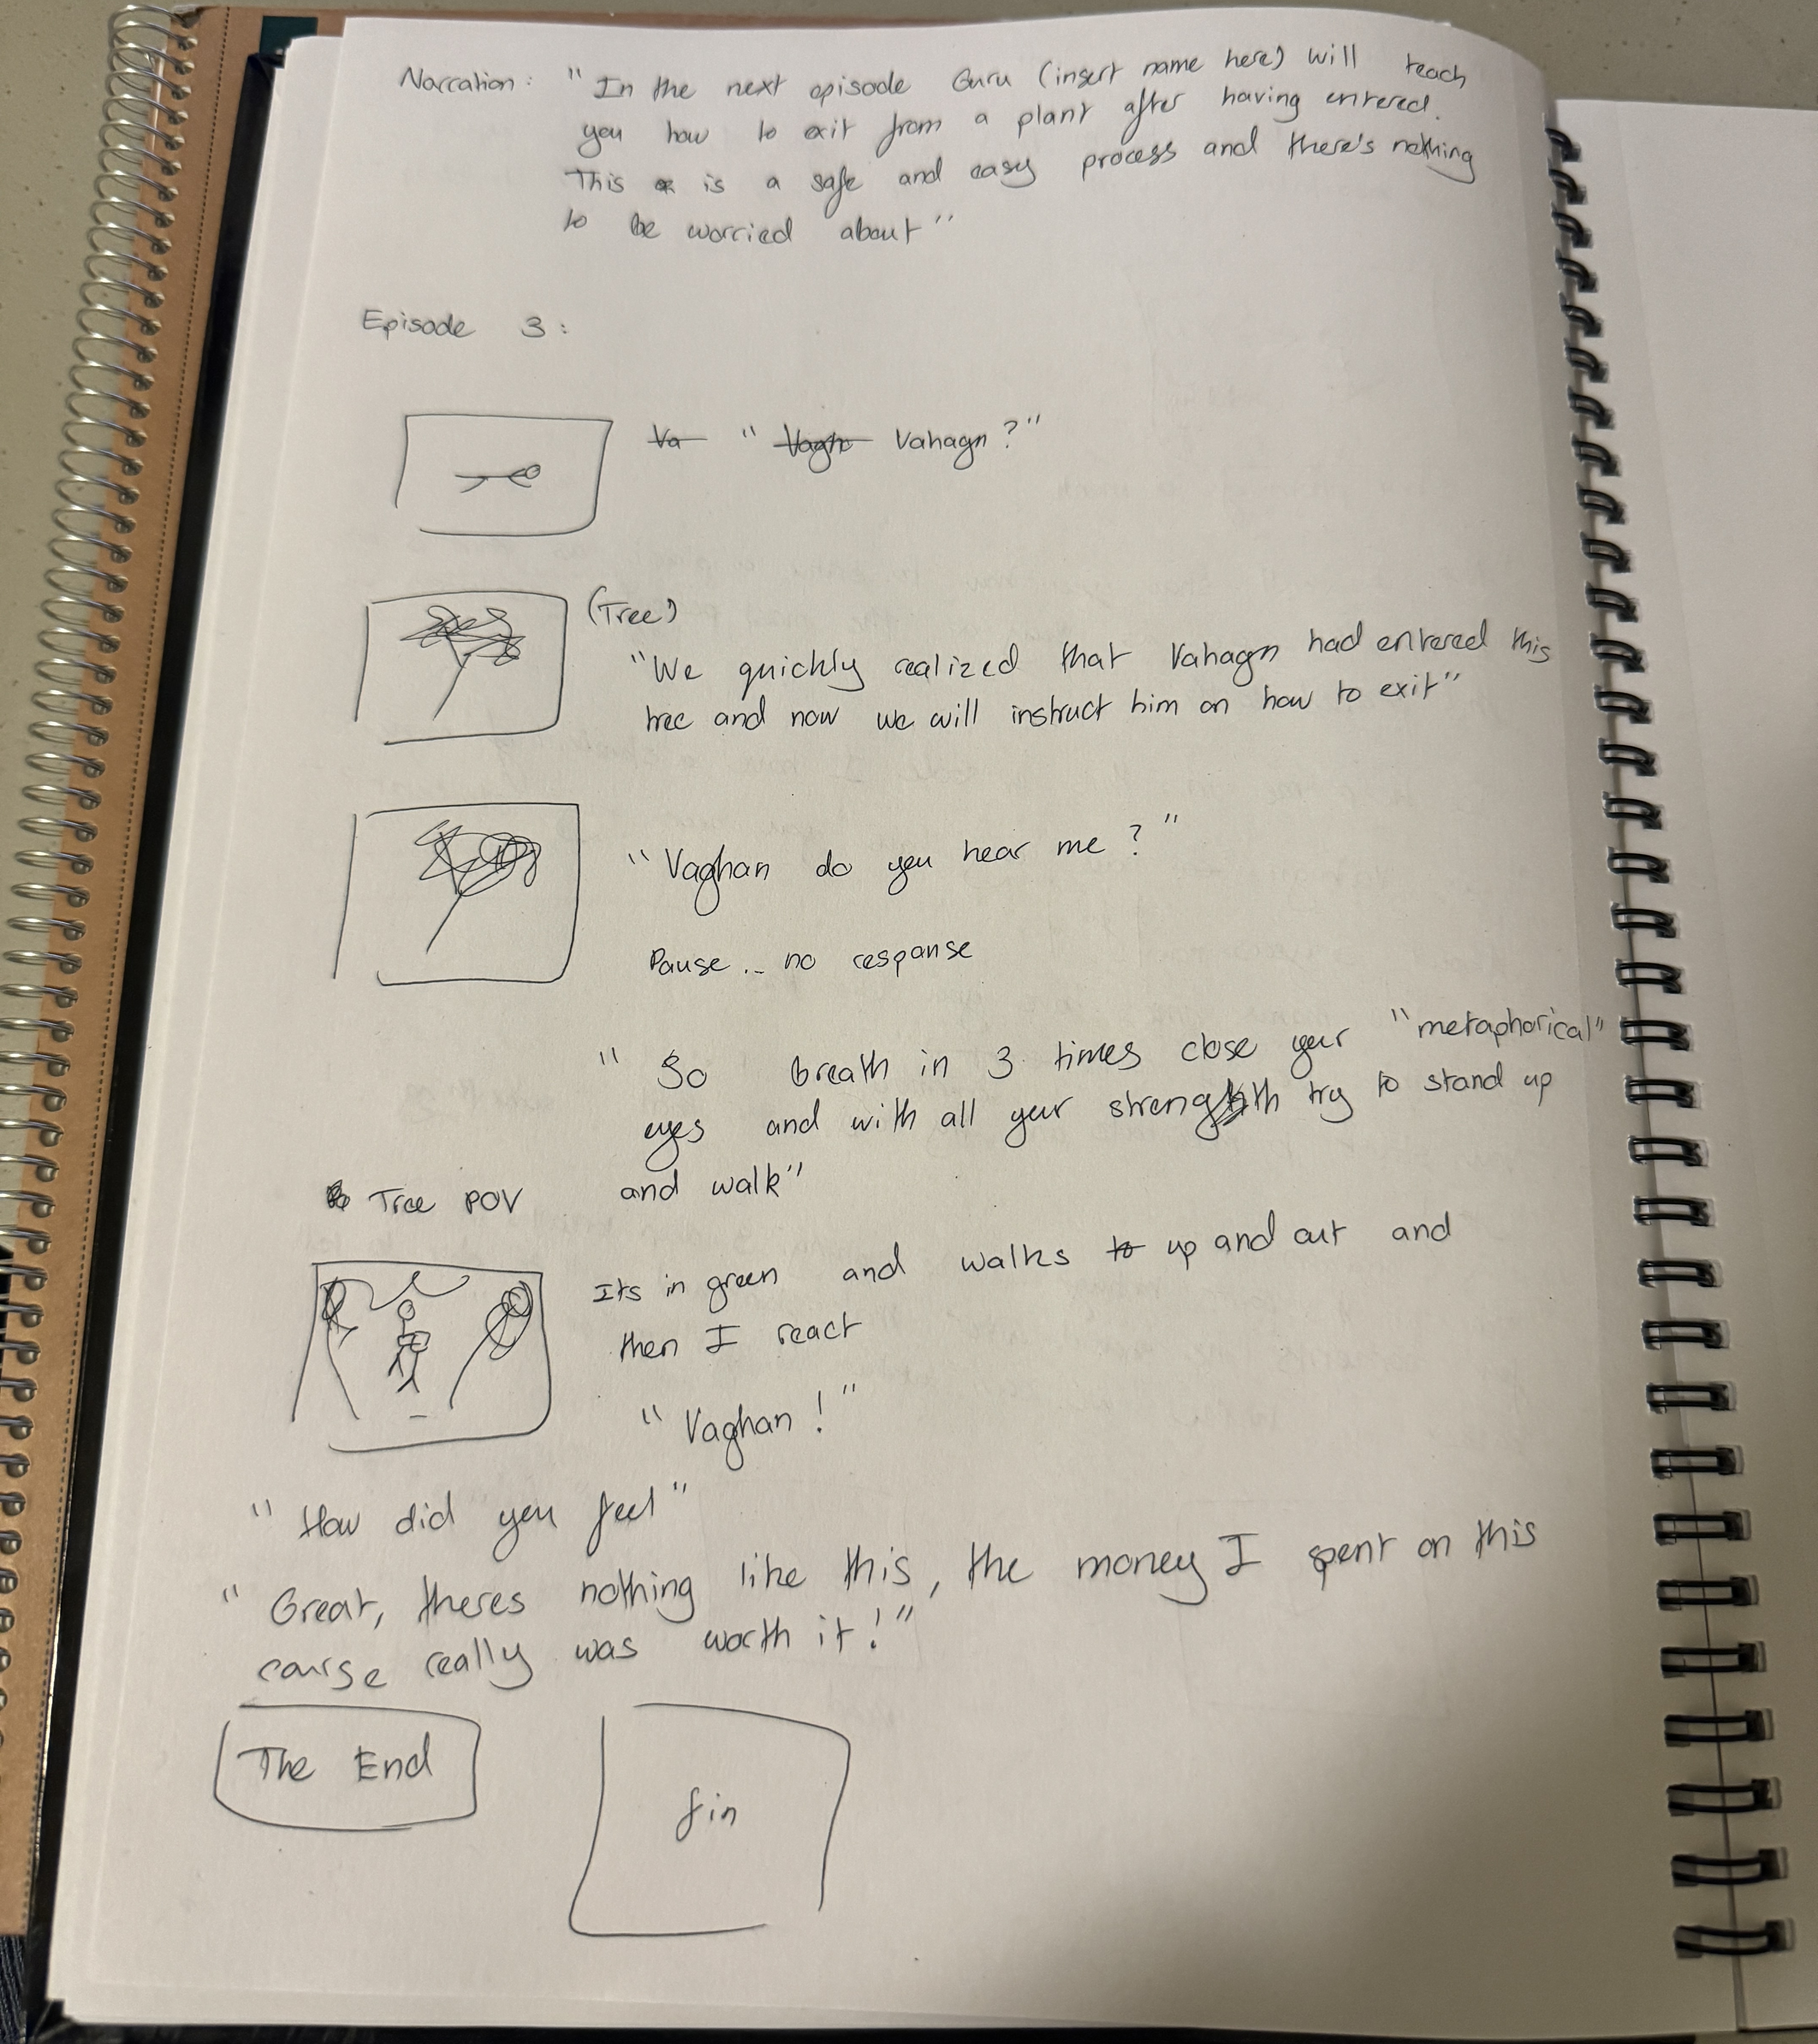 Narration: "In the next episode Guru (insert name here) will teach
you how to exit from a plant after having entered.
This is a safe and easy process and there's nothing
to be worried about"
Episode 3:
Va " Vagh Vahagn?"
(Tree)
"We quickly realized that Vahagn had entered this
tree and now we will instruct him on how to exit"
"Vaghan do you hear me?"
Pause... no response
" So breath in 3 times close your "metaphorical"
eyes and with all your strength try to stand up
and walk"
Tree POV
Its in green and walks to up and out and
then I react
"Vaghan!"
"How did you feel"
"Great, theres nothing like this, the money I spent on this
course really was worth it!"
The End
fin